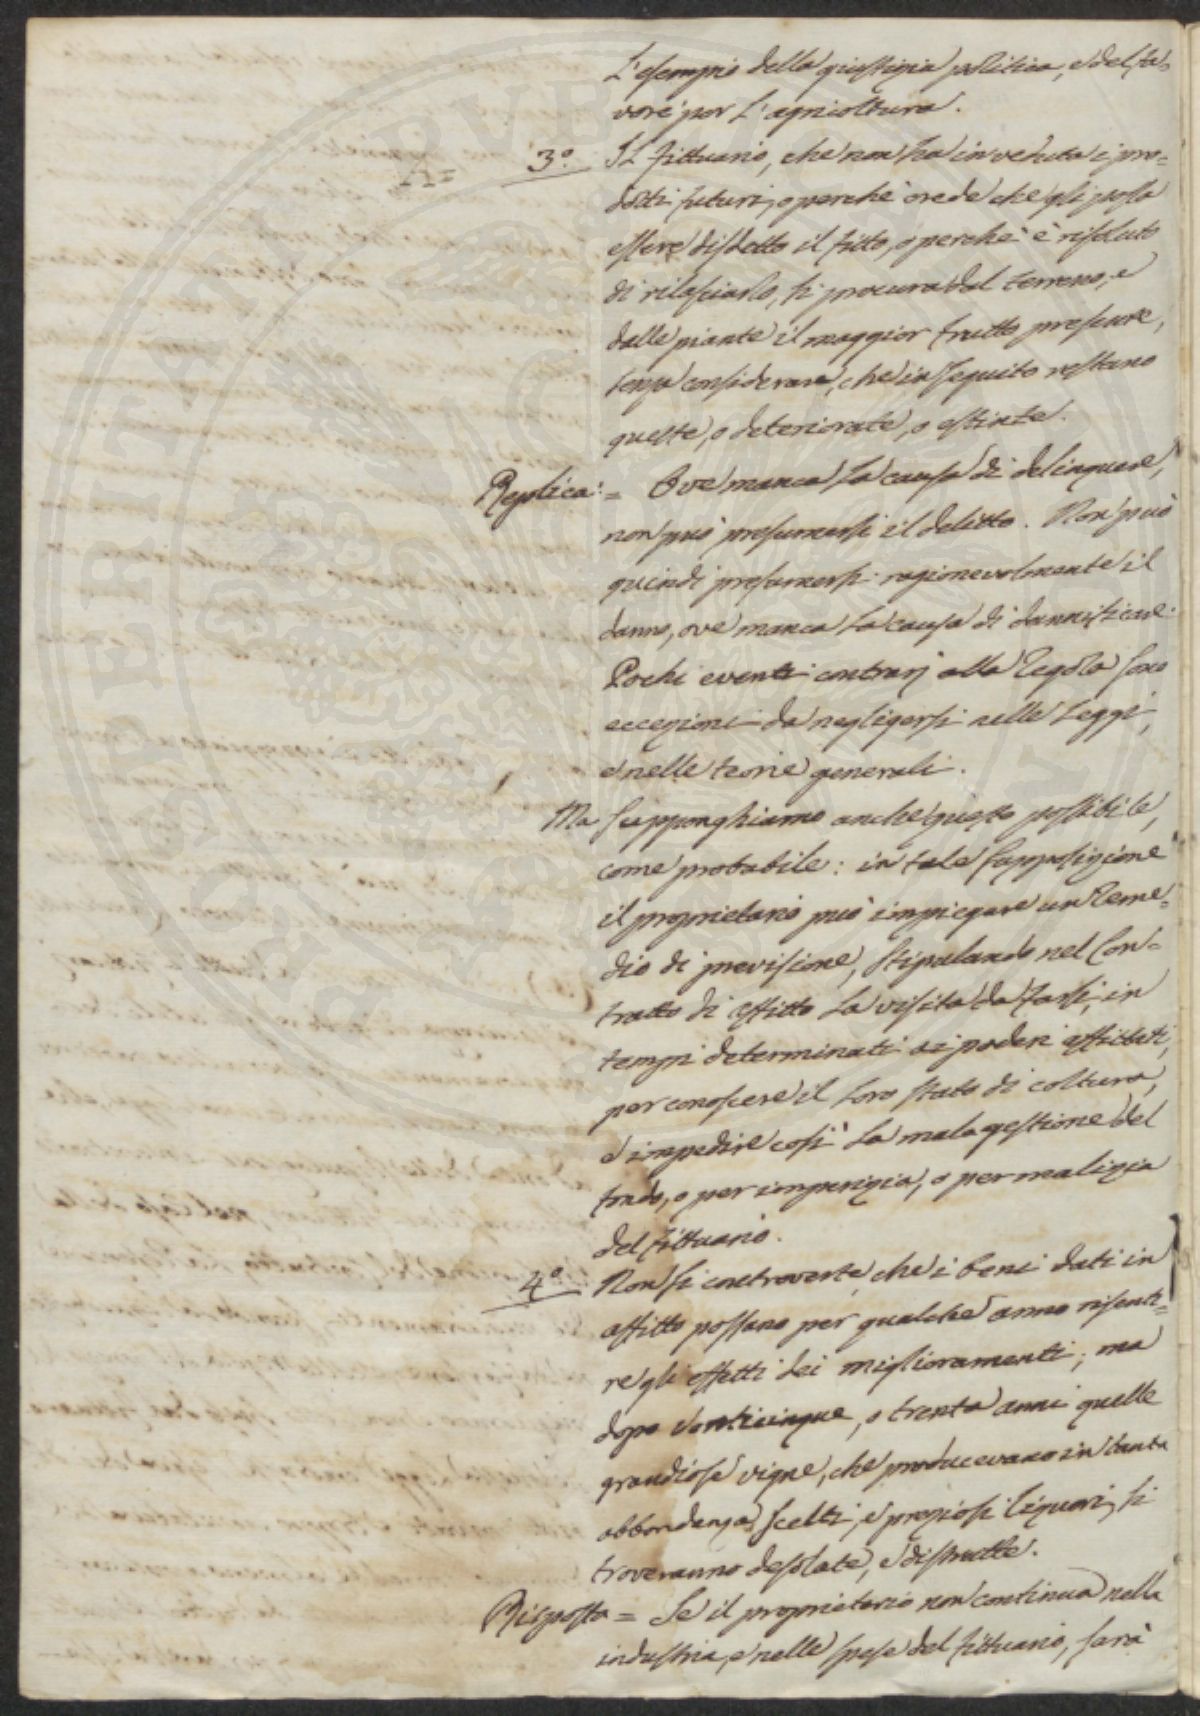 L'esempio della giustizia politica, e del fa=
vore per l'agricoltura.
3.° Il fittuario, che non ha in veduta i pro=
dotti futuri, o perchè crede che gli possa
essere disdetto il fitto, o perchè è risoluto
di rilasciarlo, si procura dal terreno, e
dalle piante il maggior frutto presente,
senza considerare, che in seguito restano
queste, o deteriorate, o estinte.
Replica: = Ove manca la causa di delinquere,
non può presumersi il delitto. Non può
quindi presumersi ragionevolmente il
danno, ove manca la causa di dannificare.
Pochi eventi contrarj alla regola sono
eccezioni da negligersi nelle Leggi,
e nelle teorie generali.
Ma supponghiamo anche questo possibile,
come probabile: in tale supposizione
il proprietario può impiegare un reme=
dio di previsione, stipulando nel Con=
tratto di affitto la visita da farsi, in
tempi determinati ai poderi affittati,
per conoscere il loro stato di coltura,
e impedire così la mala gestione del
fondo, o per imperizia, o per malizia
del fittuario.
4.° Non si controverte, che i beni dati in
affitto possano per qualche anno risenti=
re gli effetti dei miglioramenti; ma
dopo venticinque, o trenta anni quelle
grandiose vigne, che producevano in tanta
abbondanza scelti, e preziosi liquori, si
troveranno desolate, e distrutte.
Risposta = Se il proprietario non continua nella
industria, e nelle spese del fittuario, sarà